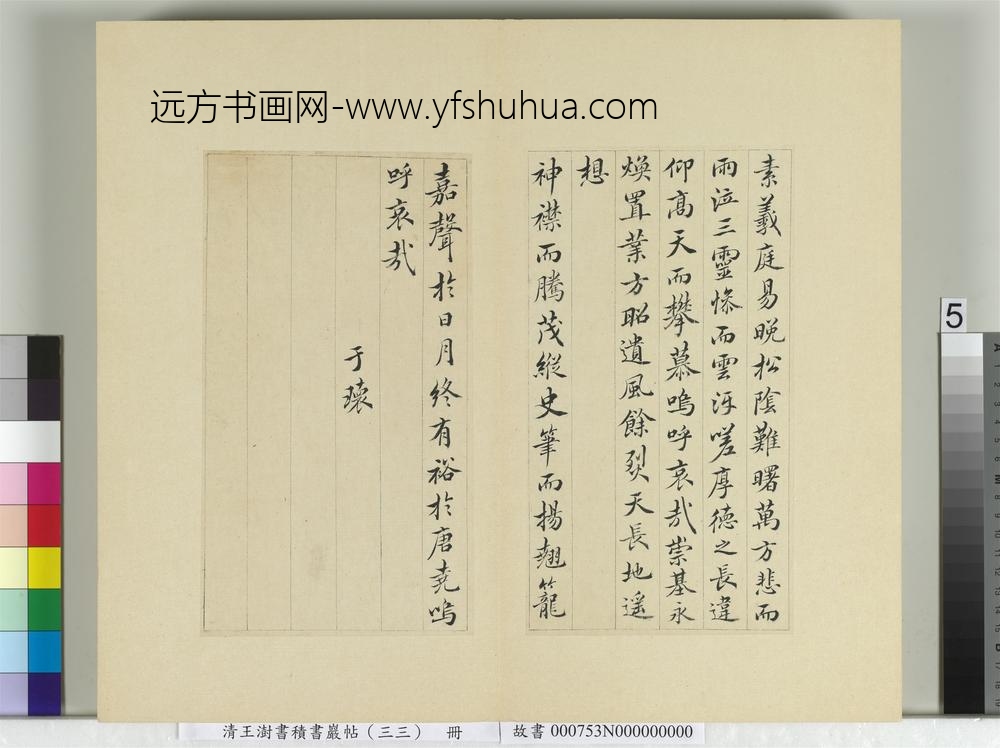 远方书画网-www.yfshuhua.com
素羲庭易晚松陰難曙萬方悲而
雨泣三靈慘而雲沍嗟厚德之長違
仰高天而攀慕嗚呼哀哉崇基永
煥置業方昭遺風餘烈天長地遥
想
神襟而騰茂縱史筆而揚翹籠
嘉聲於日月終有裕於唐堯嗚
呼哀哉
于瓌
5
清王澍書積書巖帖（三三） 冊 故書 000753N000000000